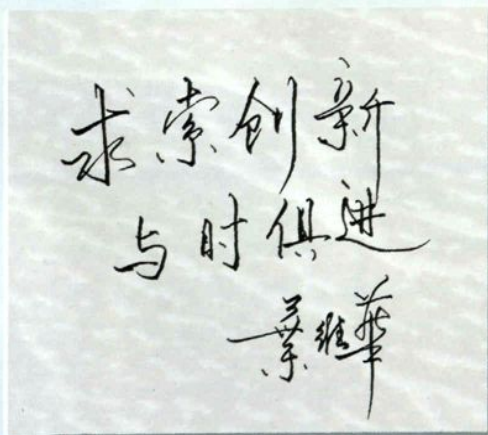 求索创新
与时俱进
葉维華